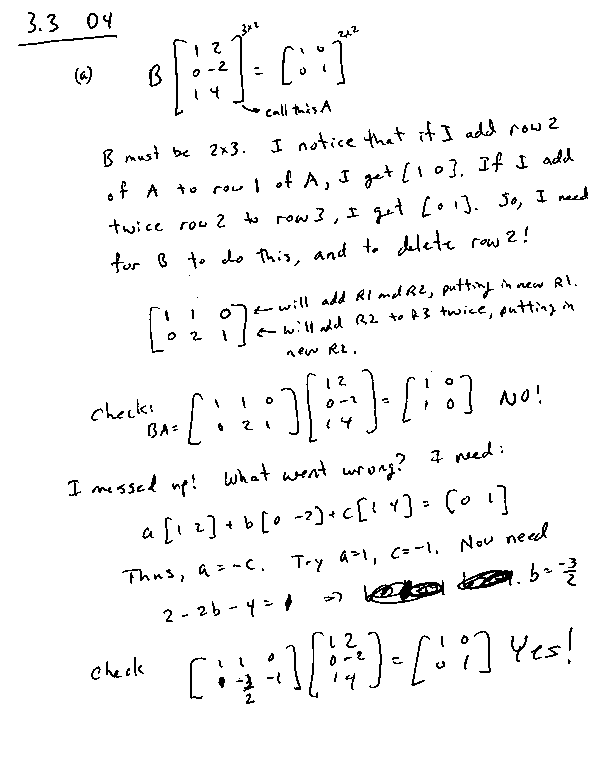 3.3 04
(a) B [1 2; 0 -2; 1 4]^{3x2} = [1 0; 0 1]^{2x2}
call this A
B must be 2x3. I notice that if I add row 2
of A to row 1 of A, I get [1 0]. If I add
twice row 2 to row 3, I get [0 1]. So, I need
for B to do this, and to delete row 2!
[1 1 0; 0 2 1] ← will add R1 and R2, putting in new R1.
← will add R2 to R3 twice, putting in
new R2.
Check:
BA = [1 1 0; 0 2 1] [1 2; 0 -2; 1 4] = [1 0; 1 0] NO!
I messed up! What went wrong? I need:
a[1 2] + b[0 -2] + c[1 4] = [0 1]
Thus, a = -c. Try a=1, c=-1. Now need
2 - 2b - 4 = 1 ⇒ . b = -3/2
Check [1 1 0; -3/2 -1] [1 2; 0 -2; 1 4] = [1 0; 0 1] Yes!